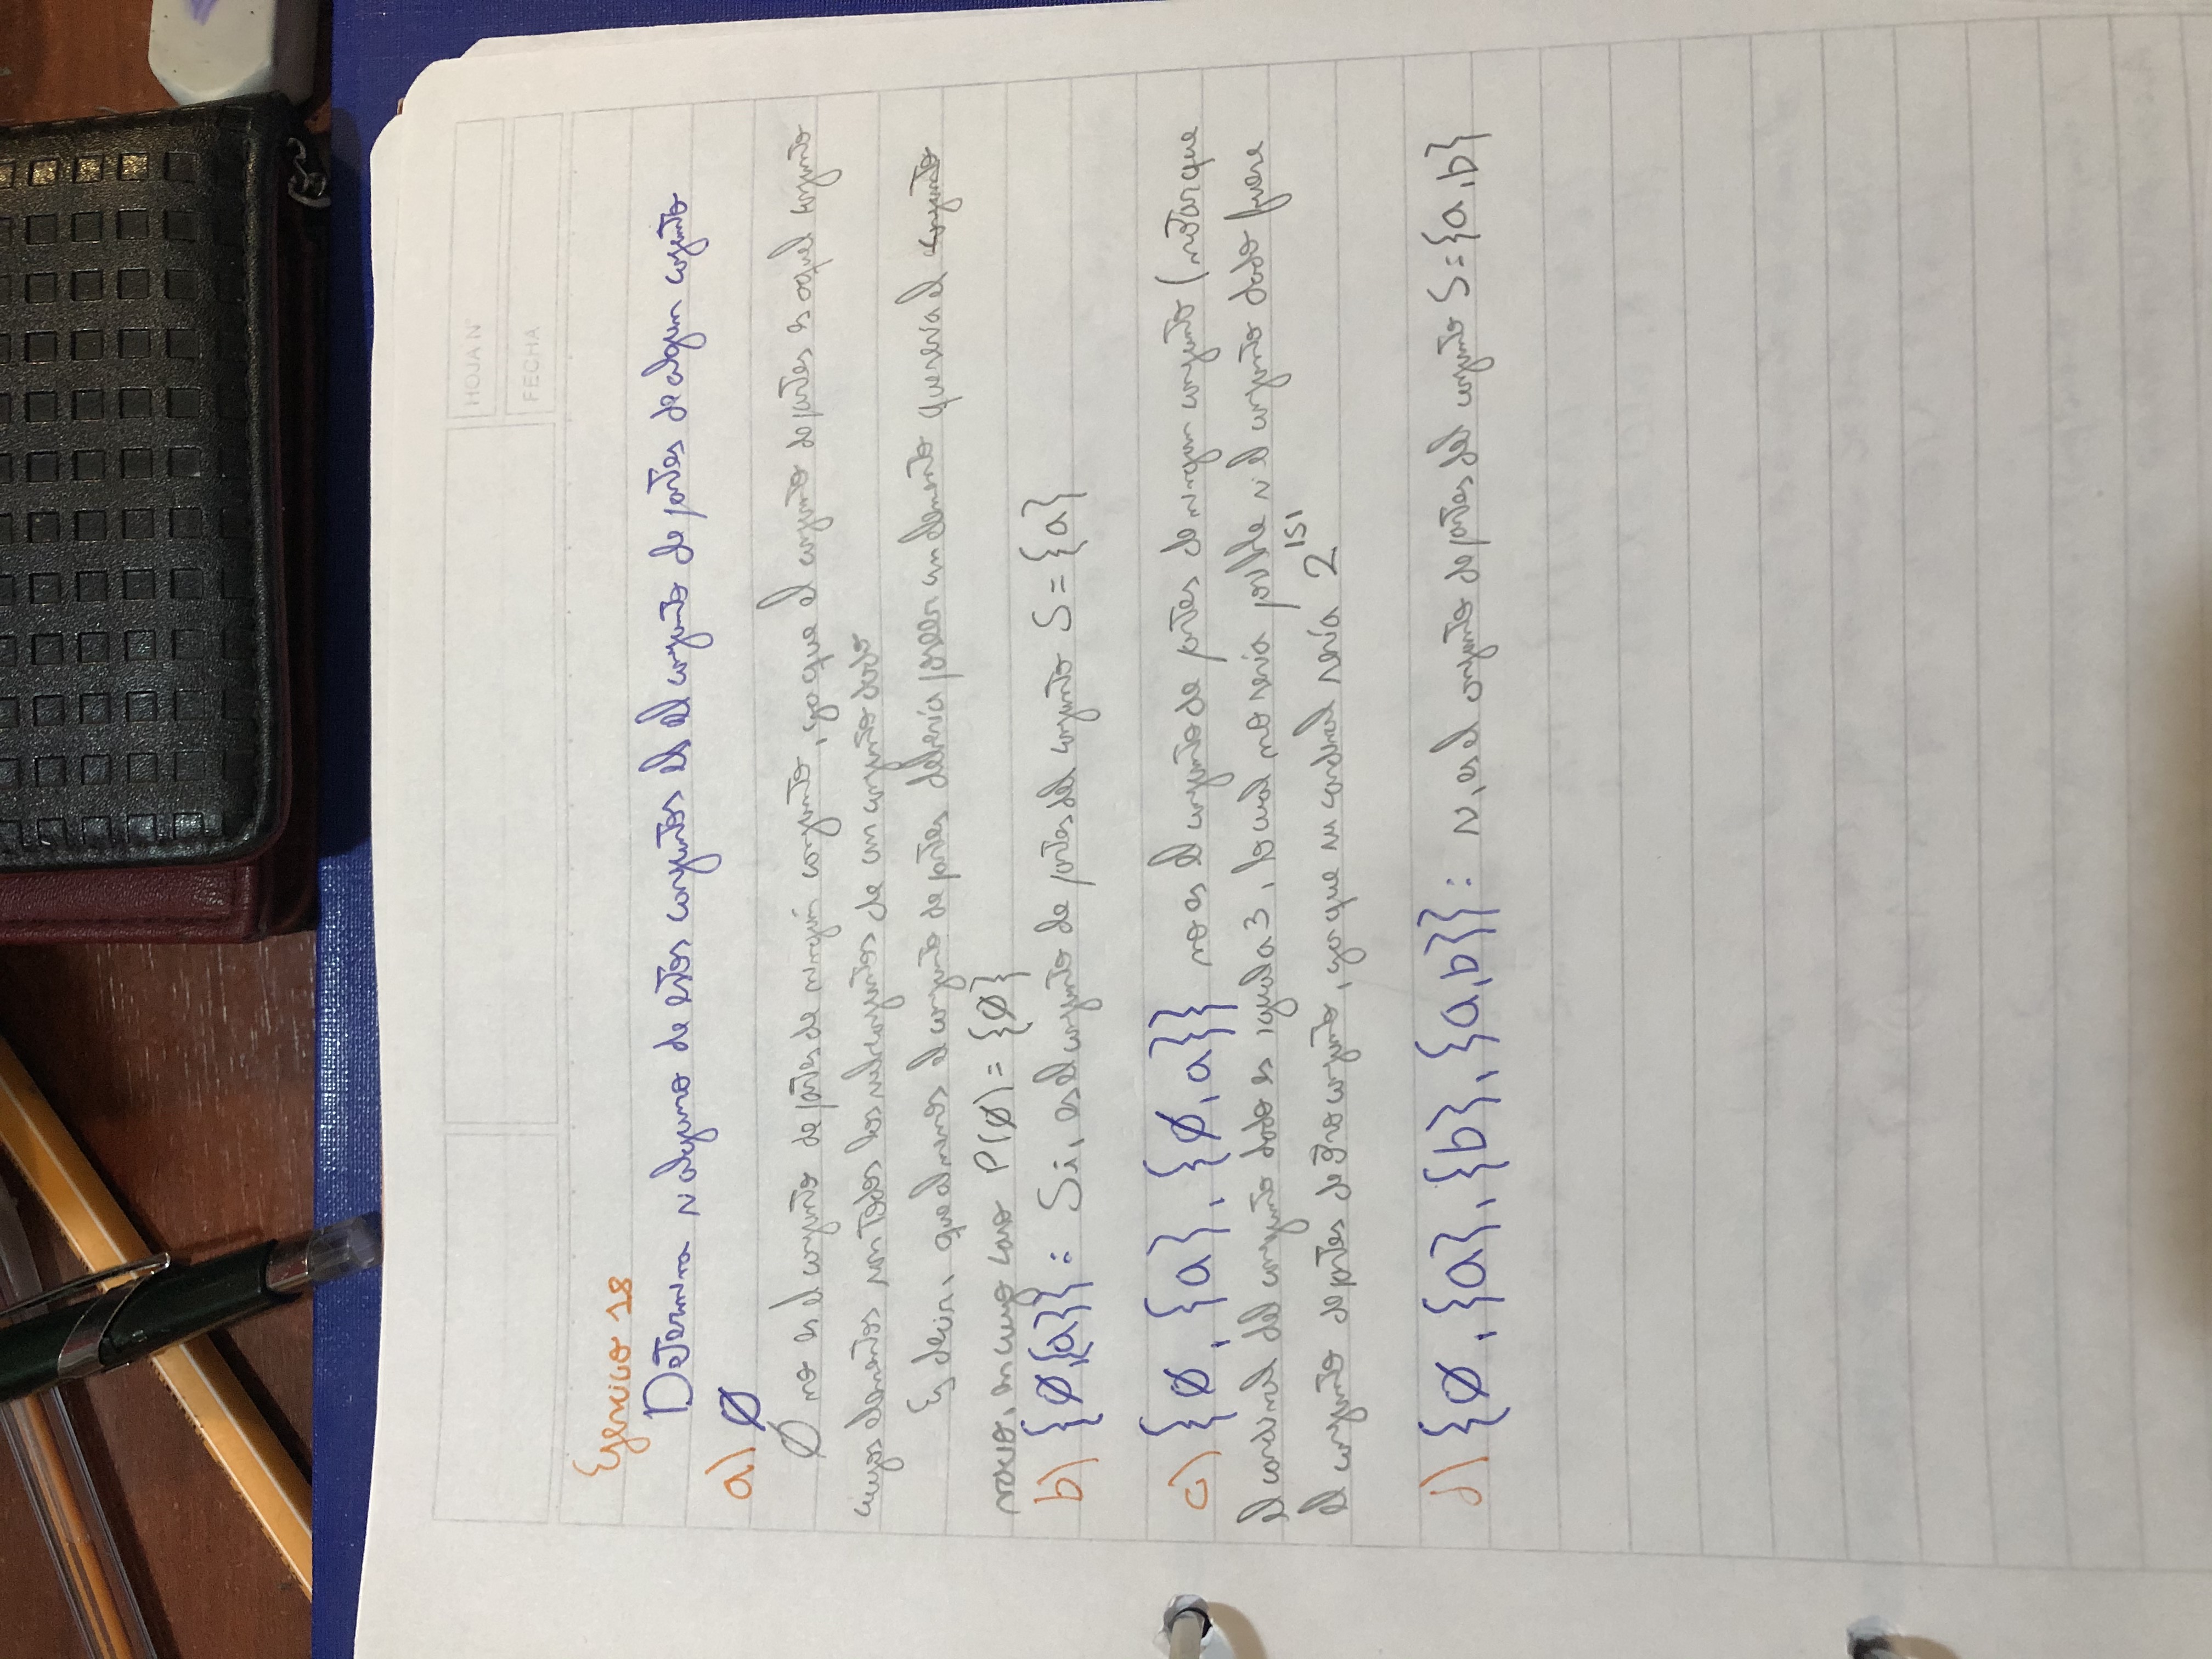 HOJA N°
FECHA
Ejercicio 18
Determina si alguno de estos conjuntos es el conjunto de partes de algun conjunto
a) ∅
∅ no es el conjunto de partes de ningún conjunto, ya que el conjunto de partes es aquel conjunto
cuyos elementos son todos los subconjuntos de un conjunto dado
Es decir, que al menos el conjunto de partes debería poseer un elemento que sería el conjunto
vacio, en cuyo caso P(∅) = {∅}
b) {∅,{a}} : Si, es el conjunto de partes del conjunto S = {a}
c) {∅, {a}, {∅, a}} no es el conjunto de partes de ningun conjunto (notar que
el cardinal del conjunto dado es igual a 3, lo cual no sería posible si el conjunto dado fuere
el conjunto de partes de otro conjunto, ya que su cardinal sería 2^|S|
d) {∅, {a}, {b}, {a,b}} : si, es el conjunto de partes del conjunto S = {a,b}